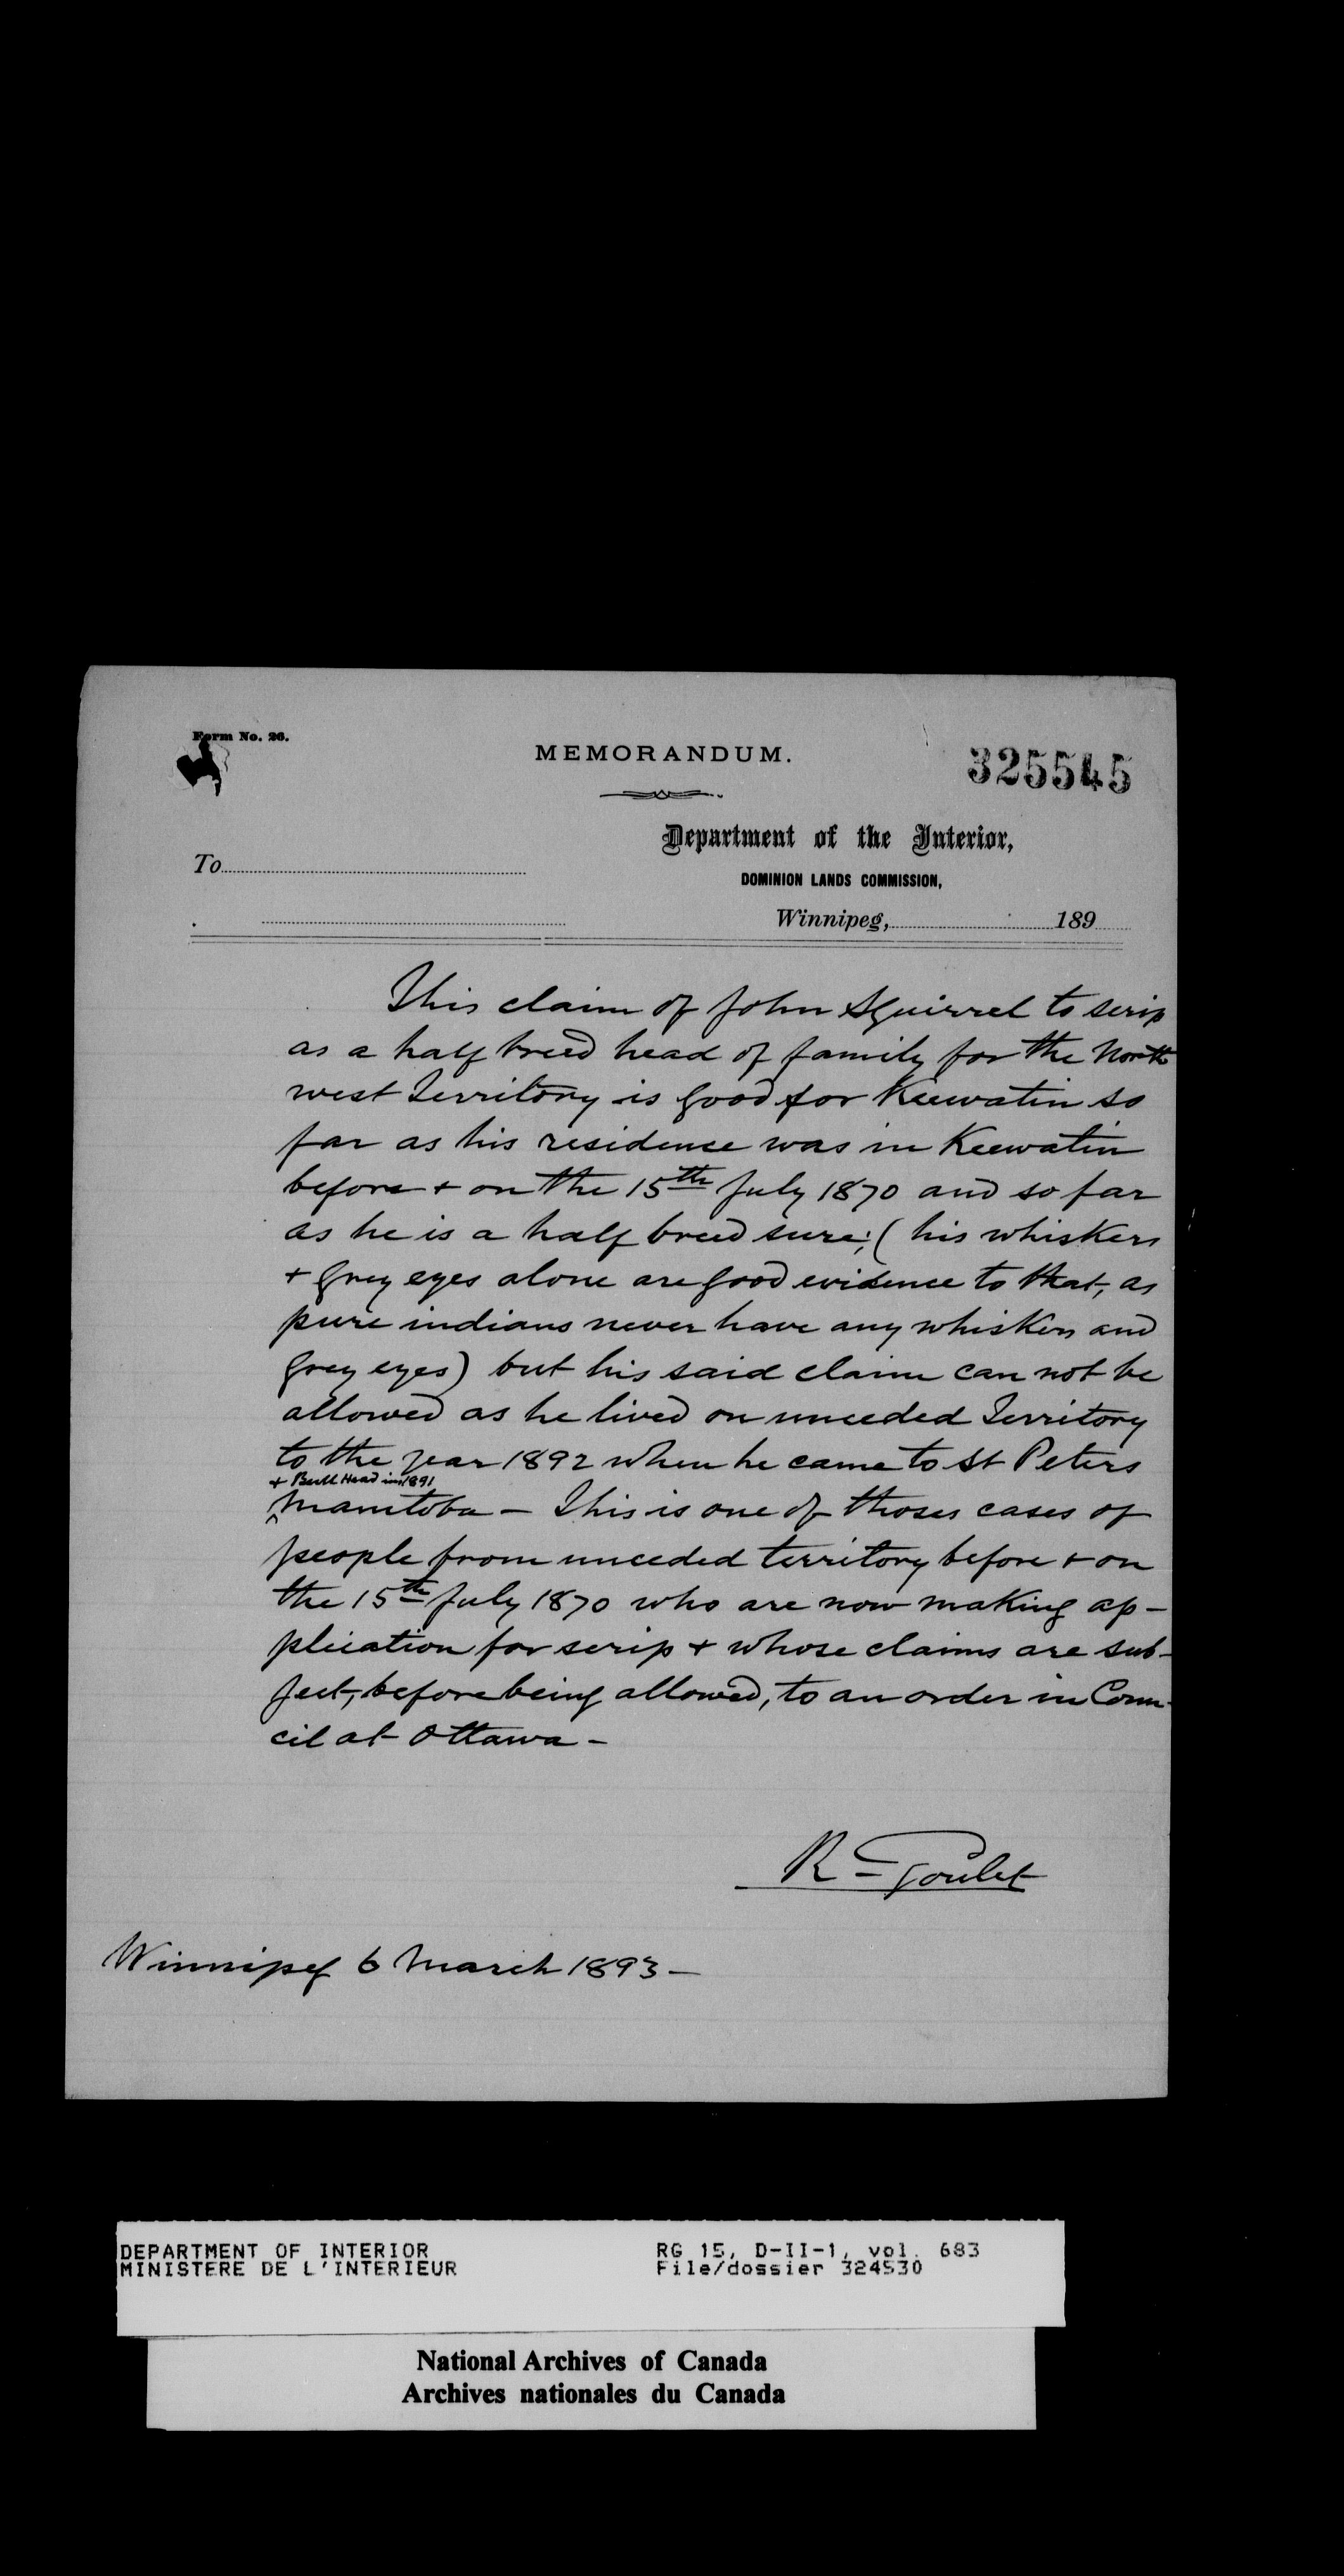 Form No. 26.
MEMORANDUM.
325545
Department of the Interior,
To
DOMINION LANDS COMMISSION,
Winnipeg, 189
This claim of John Squirrel to scrip
as a half breed head of family for the North
west Territory is good for Keewatin so
far as his residence was in Keewatin
before + on the 15th July 1870 and so far
as he is a half breed sure; (his whiskers
+ grey eyes alone are good evidence to that, as
pure indians never have any whiskers and
grey eyes) but his said claim can not be
allowed as he lived on unceded Territory
to the year 1892 when he came to St Peters
+ Bull Head in 1891
Manitoba - This is one of thoses cases of
people from unceded territory before + on
the 15th July 1870 who are now making ap-
plication for scrip + whose claims are sub-
ject, before being allowed, to an order in Coun-
cil at Ottawa -
R Goulet
Winnipeg 6 March 1893 -
DEPARTMENT OF INTERIOR
MINISTERE DE L'INTERIEUR
RG 15, D-II-1, vol. 683
File/dossier 324530
National Archives of Canada
Archives nationales du Canada